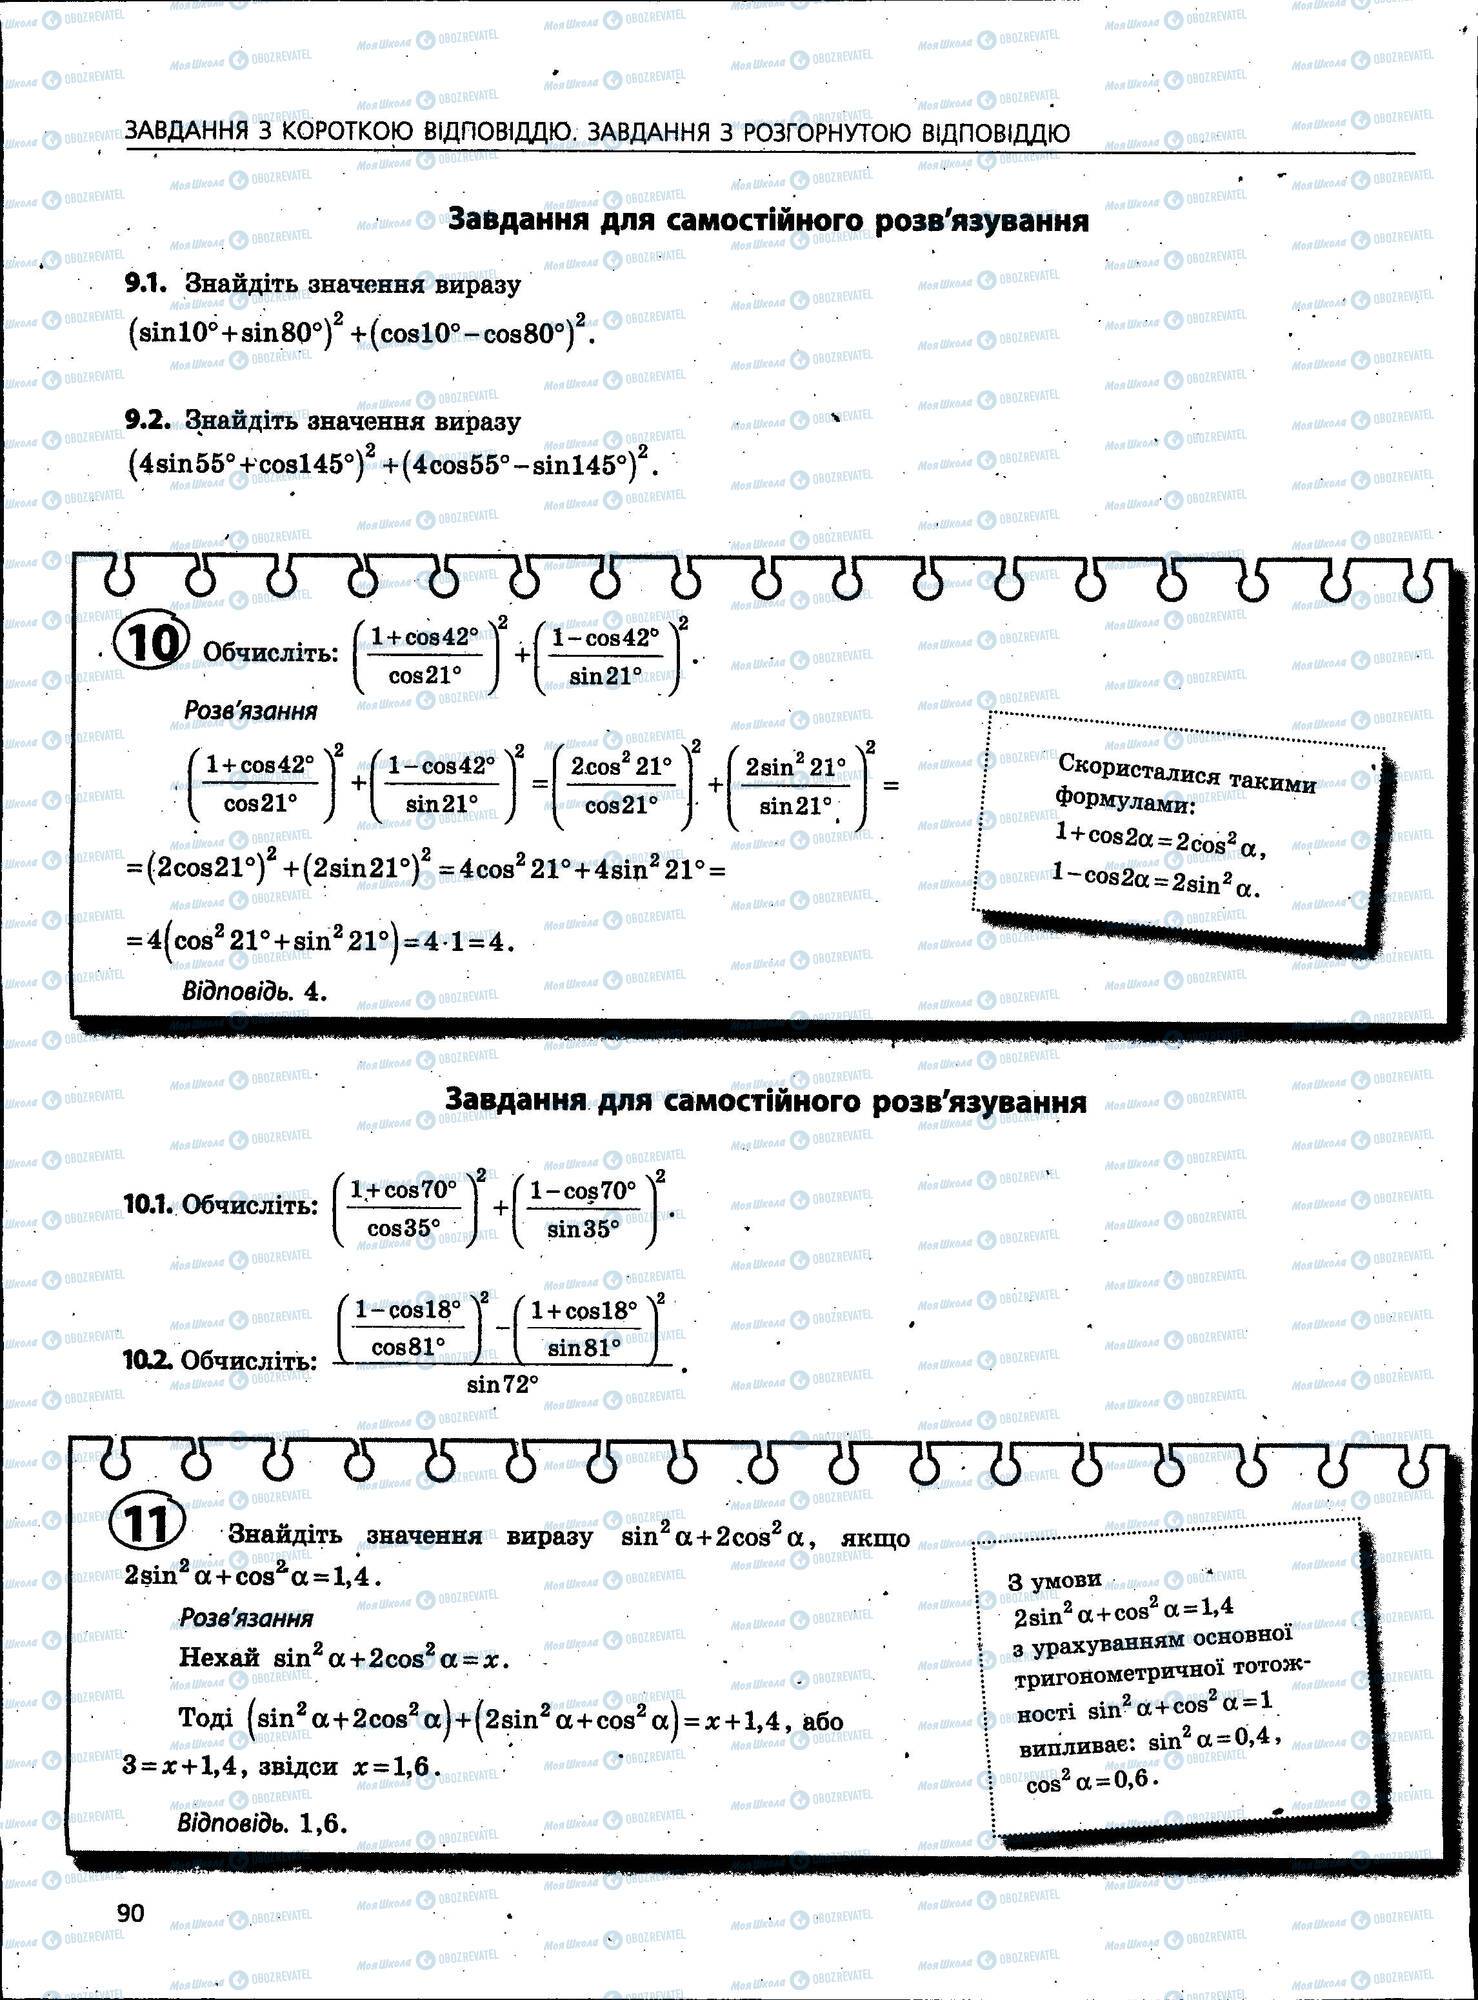 ЗАВДАННЯ З КОРОТКОЮ ВІДПОВІДДЮ. ЗАВДАННЯ З РОЗГОРНУТОЮ ВІДПОВІДДЮ
Завдання для самостійного розв'язування
9.1. Знайдіть значення виразу
(sin10°+sin80°)² +(cos10°−cos80°)².
9.2. Знайдіть значення виразу
(4sin55°+cos145°)² +(4cos55°−sin145°)².
10 Обчисліть: ((1+cos42°)/(cos21°))² + ((1−cos42°)/(sin21°))².
Розв'язання
((1+cos42°)/(cos21°))² + ((1−cos42°)/(sin21°))² = ((2cos² 21°)/(cos21°))² + ((2sin² 21°)/(sin21°))² =
=(2cos21°)² +(2sin21°)² =4cos² 21°+4sin² 21°=
=4(cos² 21°+sin² 21°)=4·1=4.
Відповідь. 4.
Скористалися такими
формулами:
1+cos2α=2cos² α,
1−cos2α=2sin² α.
Завдання для самостійного розв'язування
10.1. Обчисліть: ((1+cos70°)/(cos35°))² + ((1−cos70°)/(sin35°))².
10.2. Обчисліть: (((1−cos18°)/(cos81°))² − ((1+cos18°)/(sin81°))²)/(sin72°).
11 Знайдіть значення виразу sin² α+2cos² α, якщо
2sin² α+cos² α=1,4.
Розв'язання
Нехай sin² α+2cos² α=x.
Тоді (sin² α+2cos² α)+(2sin² α+cos² α)=x+1,4, або
3=x+1,4, звідси x=1,6.
Відповідь. 1,6.
З умови
2sin² α+cos² α=1,4
з урахуванням основної
тригонометричної тотож-
ності sin² α+cos² α=1
випливає: sin² α=0,4,
cos² α=0,6.
90